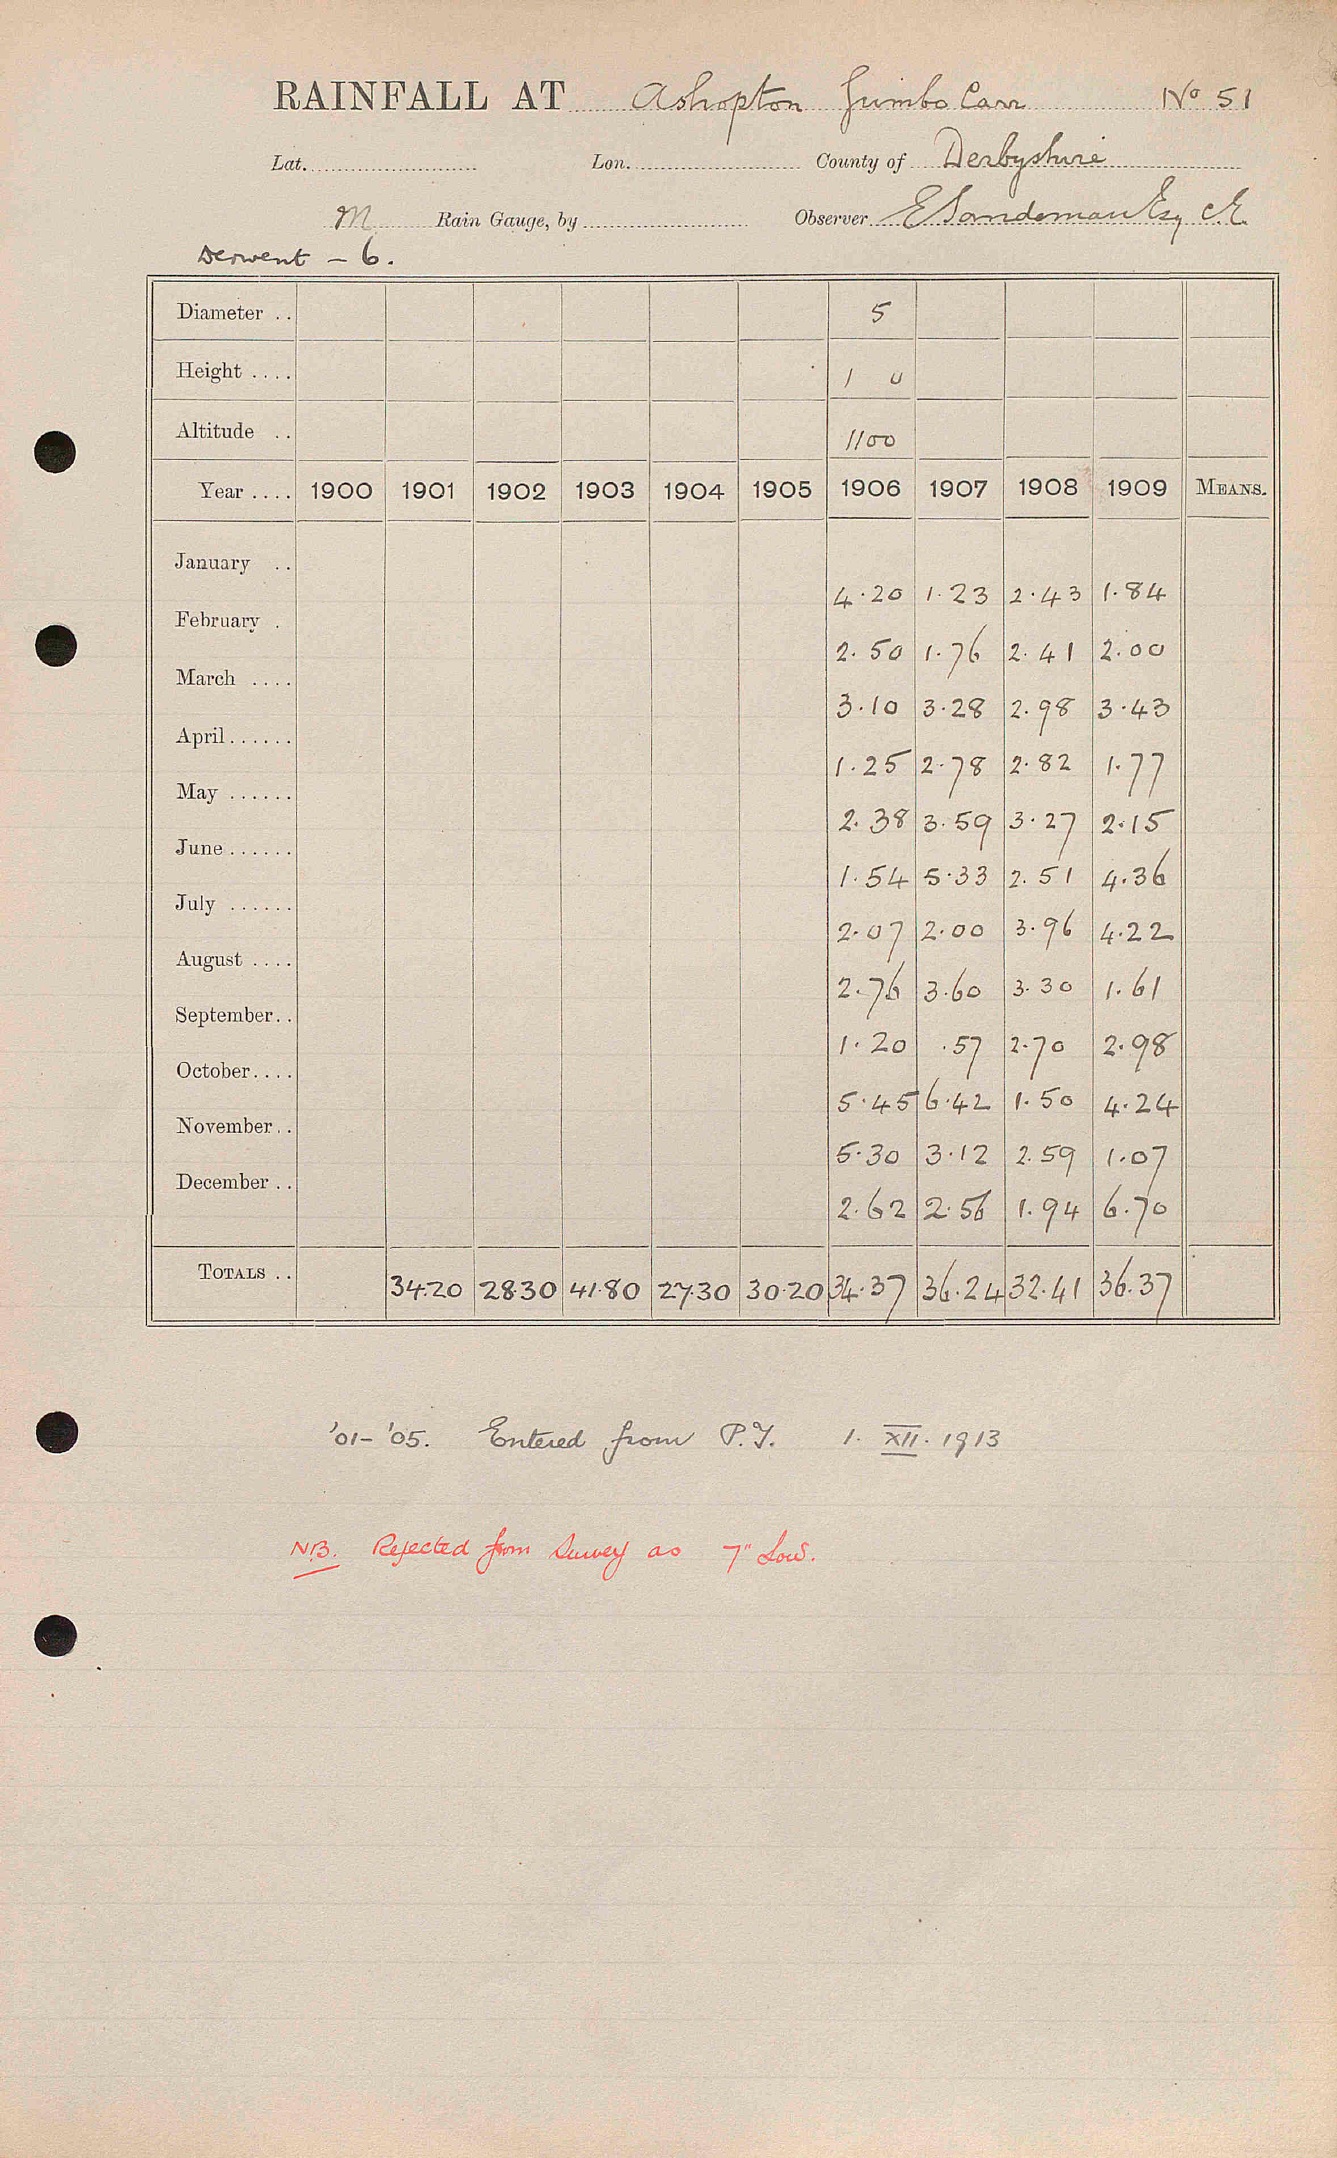 RAINFALL AT Ashopton Gumbo Carr No 51
Lat. Lon. County of Derbyshire
M Rain Gauge, by Observer E Sandeman Esq C.E.
Derwent – 6.
Diameter .. 5
Height .... 1 0
Altitude .. 1100
Year .... 1900 1901 1902 1903 1904 1905 1906 1907 1908 1909 MEANS.
January .. 4.20 1.23 2.43 1.84
February . 2.50 1.76 2.41 2.00
March .... 3.10 3.28 2.98 3.43
April...... 1.25 2.78 2.82 1.77
May ...... 2.38 3.59 3.27 2.15
June...... 1.54 5.33 2.51 4.36
July ...... 2.07 2.00 3.96 4.22
August .... 2.76 3.60 3.30 1.61
September.. 1.20 .57 2.70 2.98
October.... 5.45 6.42 1.50 4.24
November.. 5.30 3.12 2.59 1.07
December .. 2.62 2.56 1.94 6.70
TOTALS .. 34.20 28.30 41.80 27.30 30.20 34.37 36.24 32.41 36.37
'01–'05. Entered from P.T. 1. XII. 1913
N.B. Rejected from Survey as 7" Low.